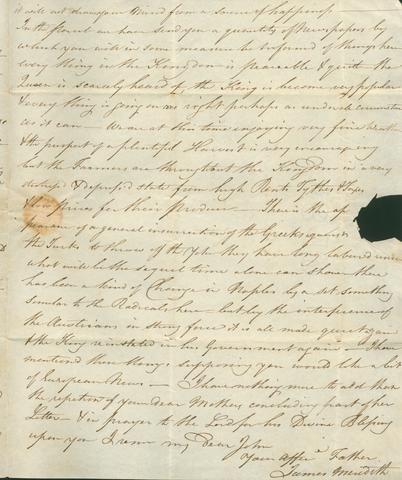 it will not draw your Mind from a sense of happiness
In the parcel we have send you a quantity of Newspapers by
which you will in some measure be informed of things here
every thing in the Kingdom is peaceable & quiet the
Queen is scarcely heard of the King is become very popular
& every thing is going on as right perhaps as under circumstances
as it can — We are at this time enjoying very fine weather
& the prospect of a plentiful Harvest is very encouraging
but the Farmers are throughout the Kingdom in a very
distressed & depressed state from high Rents Tythes & Taxes
& low prices for their produce — There is the ap
pearance of a general insurrection of the Greeks against
the Turks to throw off the Yoke they have long labored under
what will be the sequel time alone can show there
has been a kind of Change in Naples by a set something
similar to the Radicals here — but by the interference of
the Austrians in strong force it is all made quiet again
& the King reinstated in his Government again — I have
mentioned these things supposing you would like a bit
of European News — I have nothing more to add than
the repetition of your dear Mothers concluding part of her
Letter — & in prayer to the Lord for his Divine Blessing
upon you I remn my Dear John
Your Affece Father
James Meredith